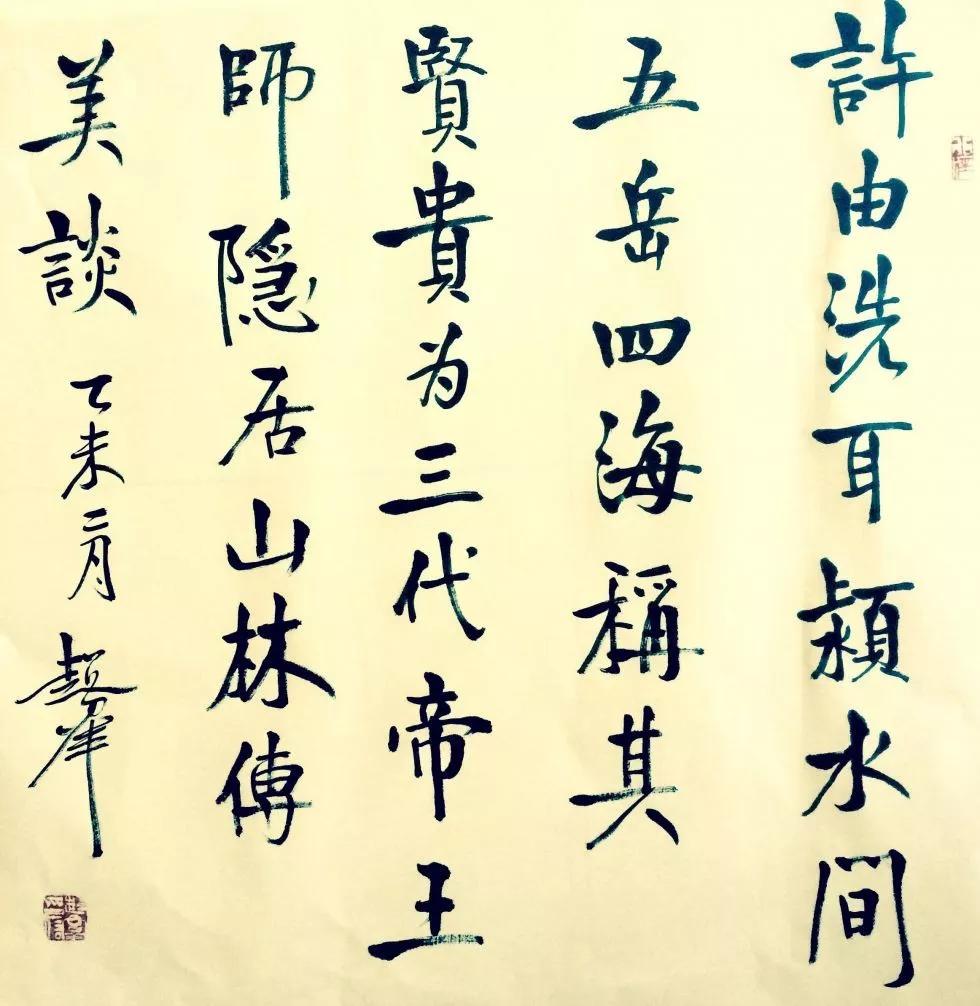 許由洗耳潁水間
五岳四海稱其
賢貴为三代帝王
師隐居山林傳
美談 乙未二月